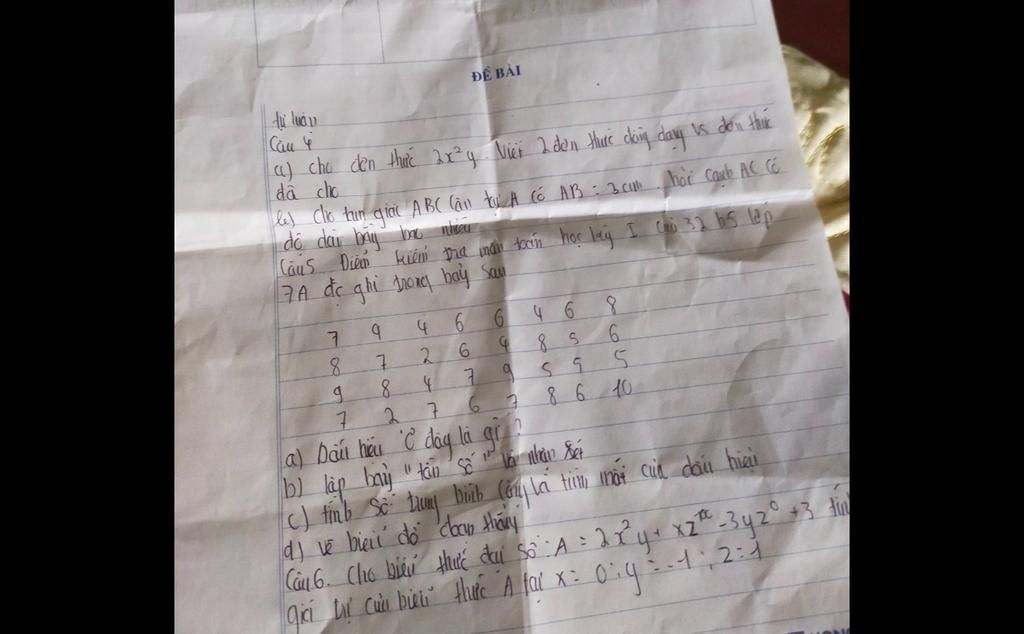 ĐỀ BÀI
tự luận
Câu 4
a) cho đơn thức 2x²y. Viết 2 đơn thức đồng dạng vs đơn thức
đã cho
b) Cho tam giác ABC cân tại A có AB = 3cm. hỏi cạnh AC có
độ dài bằng bao nhiêu
Câu 5. Điểm kiểm tra môn toán học kỳ I của 32 hs lớp
7A đc ghi trong bảng sau
7 9 4 6 6 4 6 8
8 7 2 6 4 8 5 6
9 8 4 7 9 5 5 5
7 2 7 6 7 8 6 10
a) Dấu hiệu ở đây là gì?
b) lập bảng "tần số" và nhận xét
c) tính số trung bình cộng và tìm mốt của dấu hiệu
d) vẽ biểu đồ đoạn thẳng
Câu 6. Cho biểu thức đại số: A = 2x²y + xz - 3yz + 3 tính
giá trị của biểu thức A tại x = 0; y = -1; z = 1